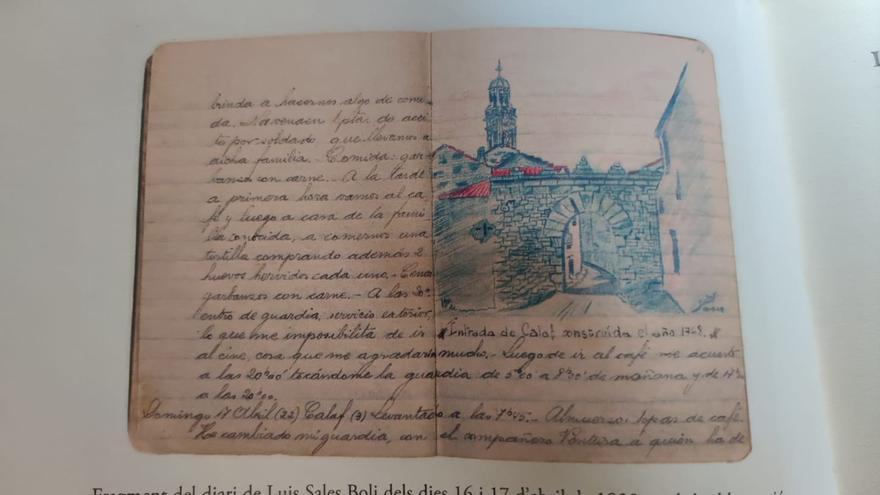 brinda a hacernos algo de comi-
da. 1 pta. de acei-
te por soldado que llevamos a
dicha familia.- Comida: gar-
banzos con carne.- A la tarde
a primera hora vamos al ca-
fé y luego a casa de la fami-
lia conocida, a comernos una
tortilla comprando además 2
huevos hervidos cada uno.- Cena
garbanzos con carne.- A las 20'
entro de guardia, servicio exterior,
lo que me imposibilita de ir
Entrada de Calaf construida el año
al cine, cosa que me agradaría mucho.- Luego de ir al café me acuesto
a las 20'00 tocándome la guardia de a 8'30 de mañana y de
a las 20'00.
Domingo 17 Abril (22) Calaf (3) Levantado a las 7'45.- Almuerzo: sopas de café.
He cambiado mi guardia, con el compañero a quién ha de
Fragment del diari de Luis Sales Boli dels dies 16 i 17 d'abril